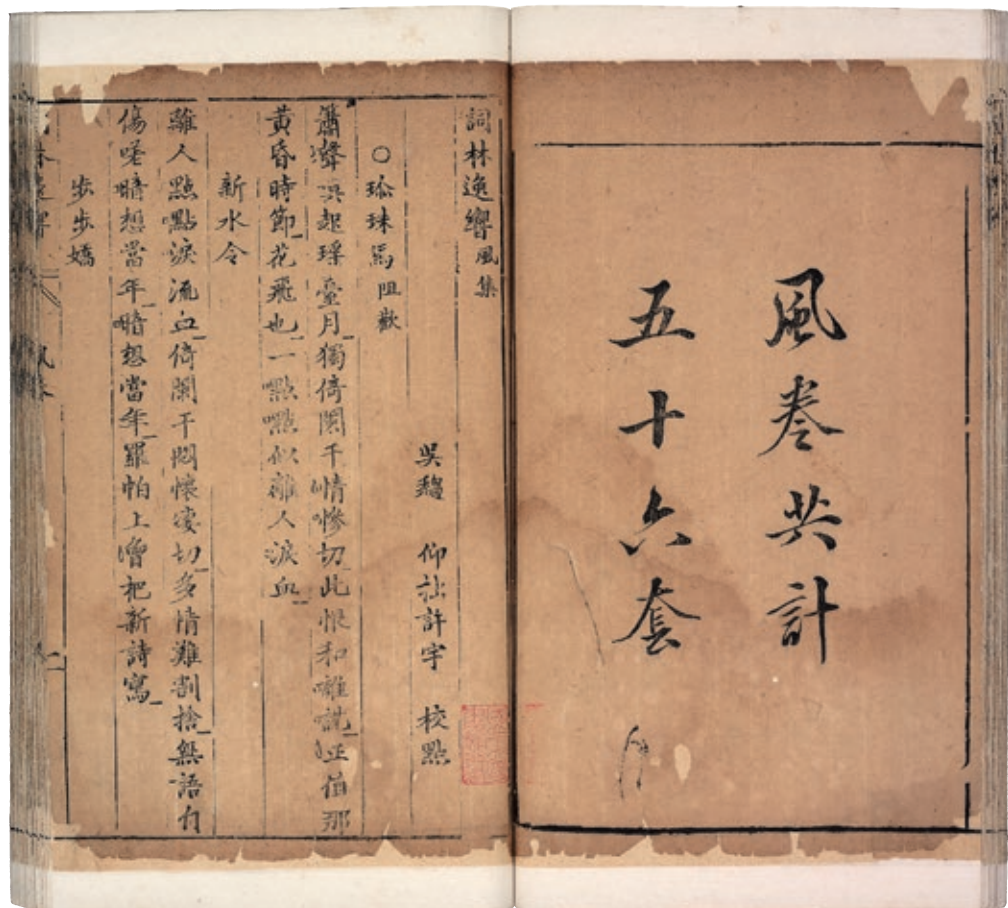 風卷共計
五十六套
詞林逸響風集
吳 仰拙許宇 校點
○珍珠馬阻歡
簫聲喚起瑤臺月獨倚闌干情慘切此恨和誰說正值那
黃昏時節花飛也一點點似離人淚血
新水令
離人點點淚流血倚闌干悶懷淒切多情難割捨無語自
傷嗟暗想當年暗想當年羅帕上曾把新詩寫
步步嬌